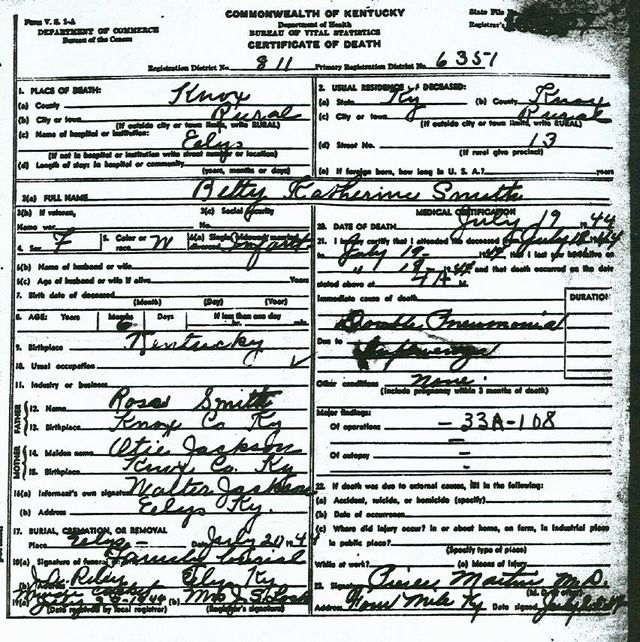 Form V. S. 1-A
DEPARTMENT OF COMMERCE
Bureau of the Census
COMMONWEALTH OF KENTUCKY
Department of Health
BUREAU OF VITAL STATISTICS
CERTIFICATE OF DEATH
State File No.
Registrar's
Registration District No. 811 Primary Registration District No. 6351
1. PLACE OF DEATH:
(a) County Knox
(b) City or town Rural
(If outside city or town limits, write RURAL)
(c) Name of hospital or institution:
Eelys
(If not in hospital or institution write street number or location)
(d) Length of stay in hospital or community
(years, months or days)
2. USUAL RESIDENCE OF DECEASED:
(a) State Ky (b) County Knox
(c) City or town Rural
(If outside city or town limits, write RURAL)
(d) Street No. 13
(If rural give precinct)
(e) If foreign born, how long in U. S. A.? years
3(a) FULL NAME Betty Katherine Smith
3(b) If veteran,
Name war
3(c) Social Security
No.
4. Sex F 5. Color or race W 6(a) Single, widowed, married, divorced Infant
6(b) Name of husband or wife
6(c) Age of husband or wife if alive Years
7. Birth date of deceased
(Month) (Day) (Year)
8. AGE: Years Months 6 Days If less than one day
hr. min.
9. Birthplace Kentucky
10. Usual occupation
11. Industry or business
FATHER
12. Name Smith
13. Birthplace Knox Co Ky
MOTHER
14. Maiden name Jackson
15. Birthplace Knox Co. Ky
16(a) Informant's own signature Walter Jackson
(b) Address Eelys Ky.
17. BURIAL, CREMATION, OR REMOVAL
Place Eelys - Date July 20 1944
18(a) Signature of funeral Family burial
(b) Riley Eelys Ky
19(a) 1944 (b) Mrs J. S.
(Date received by local registrar) (Registrar's signature)
MEDICAL CERTIFICATION
20. DATE OF DEATH July 19 1944
21. I hereby certify that I attended the deceased from July 18 1944
to July 19- 1944 that I last saw alive on
" 18- 1944 and that death occurred on the date
stated above at 4 A M.
Immediate cause of death
DURATION
Double Pneumonia
Due to
Other conditions none.
(Include pregnancy within 3 months of death)
Major findings:
Of operations - 33A-108
Of autopsy -
22. If death was due to external causes, fill in the following:
(a) Accident, suicide, or homicide (specify)
(b) Date of occurrence
(c) Where did injury occur? in or about home, on farm, in industrial place
in public place?
(Specify type of place)
While at work? (e) Means of injury
23. Signature Martin M.D.
Address Ky Date signed July